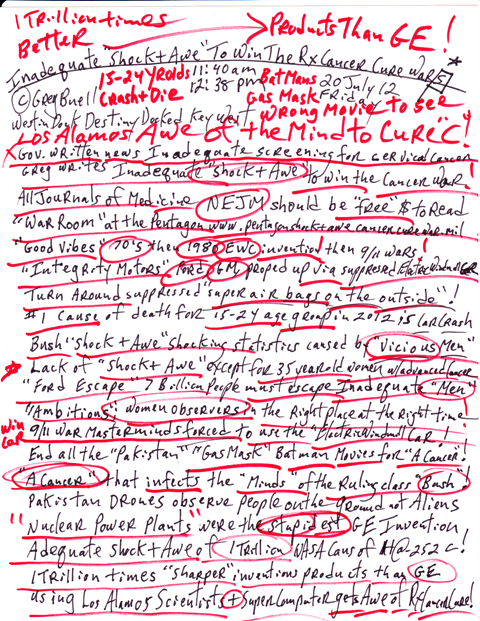 1 Trillion times
Better
Products Than GE!
Inadequate "Shock + Awe" To Win The Rx Cancer Cure Wars
© Greg Buell
15-24 yRolds
Crash + Die
11:40 am
12:38 pm
BatMans
Gas Mask
20 July 12
Friday
Wrong Movie to see
Westin Dock Destiny Docked Key West
Los Alamos Awe of the Mind to Cure "C"!
Gov. written news Inadequate screening for cervical cancer
Greg writes Inadequate "Shock + Awe" to win the Cancer War!
All Journals of Medicine NEJM should be "free" $ to Read
"War Room" at the Pentagon www.pentagonshock+awecancercurewar.mil
"Good Vibes" 70's then 1980 EWC invention then 9/11 wars!
"Integrity Motors" Ford GM proped up via suppresed
Turn Around suppressed "super air bags on the outside"!
#1 Cause of death for 15-24 age group in 2012 is car crash
Bush "Shock + Awe" shocking statistics caused by "Vicious Men"
Lack of "Shock + Awe" except for 35 year old women w/advanced cancer
"Ford Escape" 7 Billion People must escape Inadequate "Men"
"Ambitious": Women observers in the Right place at the Right time!
Win
Car
9/11 War Masterminds forced to use the "ElectricWindmillCar!
End all the "Pakistan" "GasMask" Batman Movies for "A Cancer"!
"A Cancer" that infects the "Minds" of the Ruling class "Bush"!
Pakistan Drones observe People on the ground not Aliens
"Nuclear Power Plants" were the stupidest GE Invention
Adequate shock + Awe of 1 Trillion NASA Cans of H@-252 C!
1 Trillion times "sharper" invention products than GE
using Los Alamos Scientists + SuperComputer gets Awe of RxCancerCure!